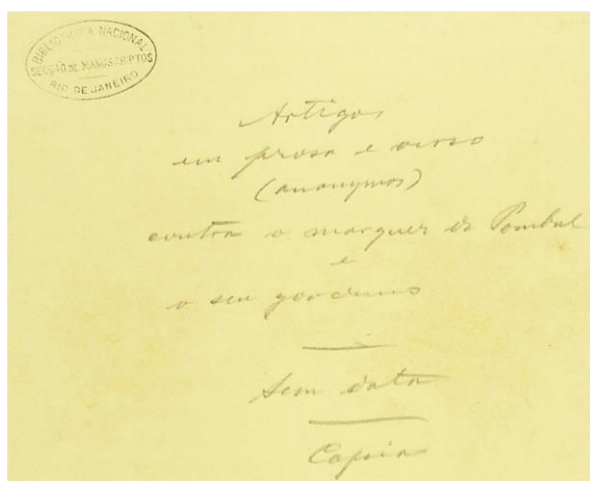 BIBLIOTHECA NACIONAL
SECÇÃO DE MANUSCRIPTOS
RIO DE JANEIRO
Artigos
em prosa e verso
(anonymos)
contra o marquez de Pombal
e
o seu governo
Sem data
Copia